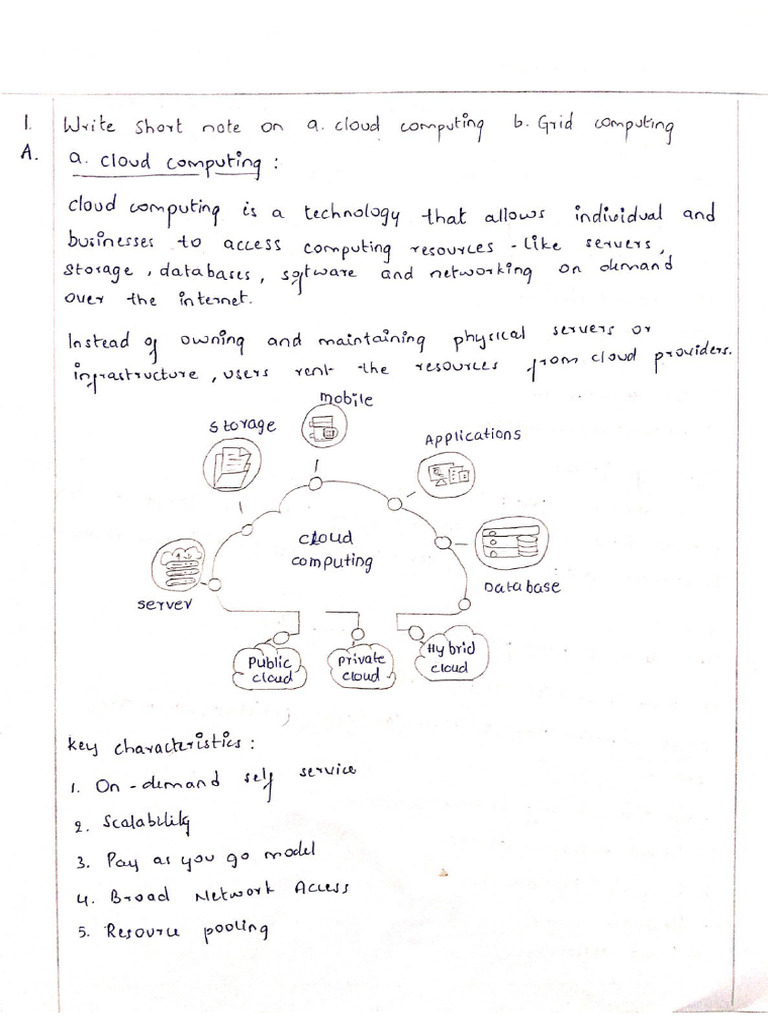 1. Write short note on a. cloud computing b. Grid computing
A. a. cloud computing :
cloud computing is a technology that allows individual and
businesses to access computing resources - like servers,
storage, databases, software and networking on demand
over the internet.
Instead of owning and maintaining physical servers or
infrastructure, users rent the resources from cloud providers.
mobile
storage
Applications
cloud
computing
server
Database
Public
cloud
private
cloud
Hybrid
cloud
key characteristics :
1. On-demand self service
2. Scalability
3. Pay as you go model
4. Broad Network Access
5. Resource pooling